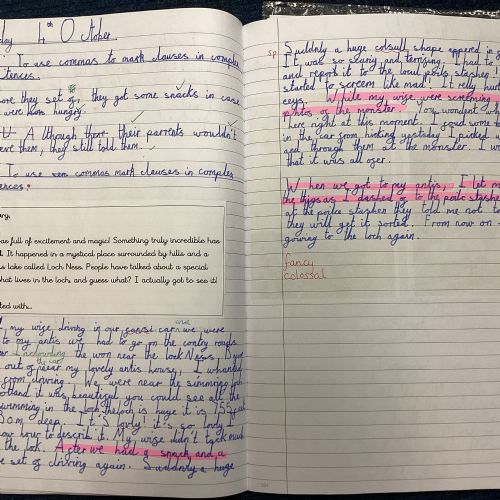 day 4th October
To use commas to mark clauses in complex
tences.
ore they set of, they got some snacks in case
were hungry.
Although there parrets wouldn't
eve them, they still told them.
To use commas mark clauses in complex
ences.
ary,
as full of excitement and magic! Something truly incredible has
d. It happened in a mystical place surrounded by hills and a
s lake called Loch Ness. People have talked about a special
hat lives in the loch, and guess what? I actually got to see it!
ted with...
my wife driving in our car and we were
to my antis we had to go on the contry rough
the won near the lock Ness,
out of near my lovely antis house, I whanted
from driving. We were near the
otland it was beautiful you could see all the
swimming in the loch. the loch is huge it is 755 feet
30m deep. It's lovly! it's so lovly I
ow how to describe it. My wife didn't
the lock. After we had a snack and a
e set of driving again. Suddnly a huge
sp
Suddnly a huge colsull shape appered in
It wat so scary and terrifing. I had to
and report it to the locul polis stashen!
started to screem like mad! It relly hurt
eeys. While my wife were screeming
photos of the monster. You wondent
here right at this moment. I foud some
in the car from fishing yestaday I picked
and through them at the monster. I
that it was all over.
When we got to my antis, I let
the thigs as I dashed of to the police stashen
at the police stashen they told me not to
they will get it sorted. From now on
gowing to the loch again.
fancy
colossal